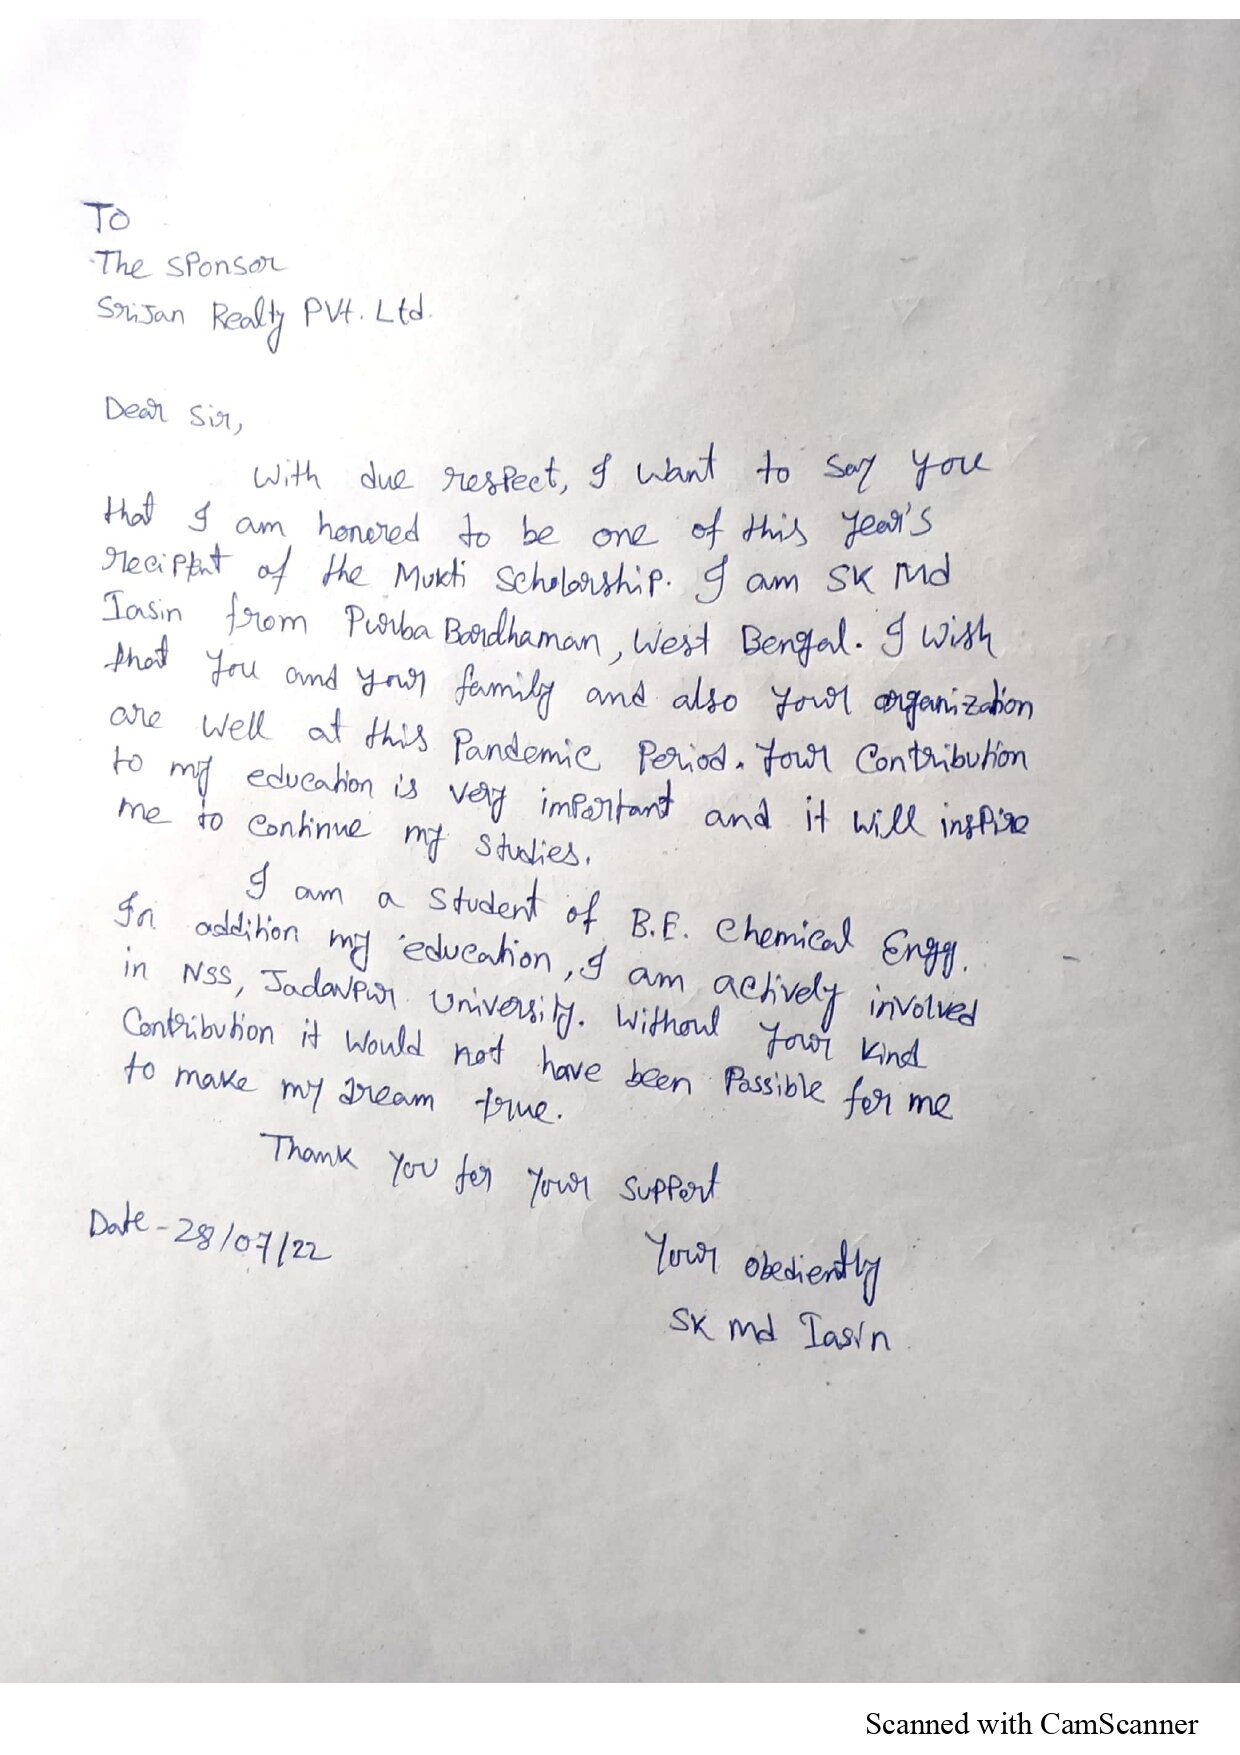 To
The Sponsor
Srijan Realty Pvt. Ltd.
Dear Sir,
With due respect, I want to say you
that I am honored to be one of this year's
of the Mukti Scholarship. I am SK Md
Iasin from Purba Bardhaman, West Bengal. I wish
that you and your family and also your organization
are well at this Pandemic Period. Your Contribution
to my education is very important and it will inspire
me to continue my studies.
I am a student of B.E. Chemical Engg.
In addition my education, I am actively involved
in NSS, Jadavpur University. Without your kind
Contribution it would not have been Possible for me
to make my dream true.
Thank you for your support
Date - 28/07/22
Your obediently
SK Md Iasin
Scanned with CamScanner